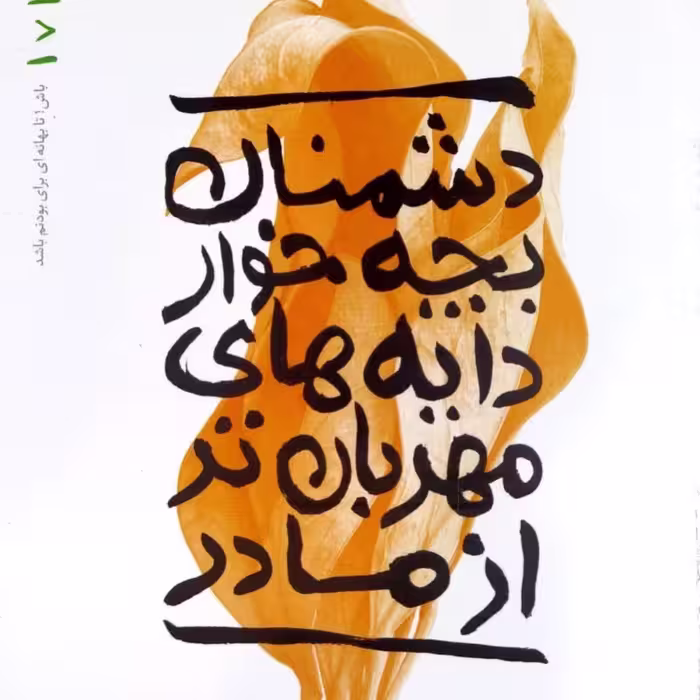 دشمنان
بچه خوار
دایه های
مهربان تر
از مادر
باش! تا بهانه ای برای بودنم باشد